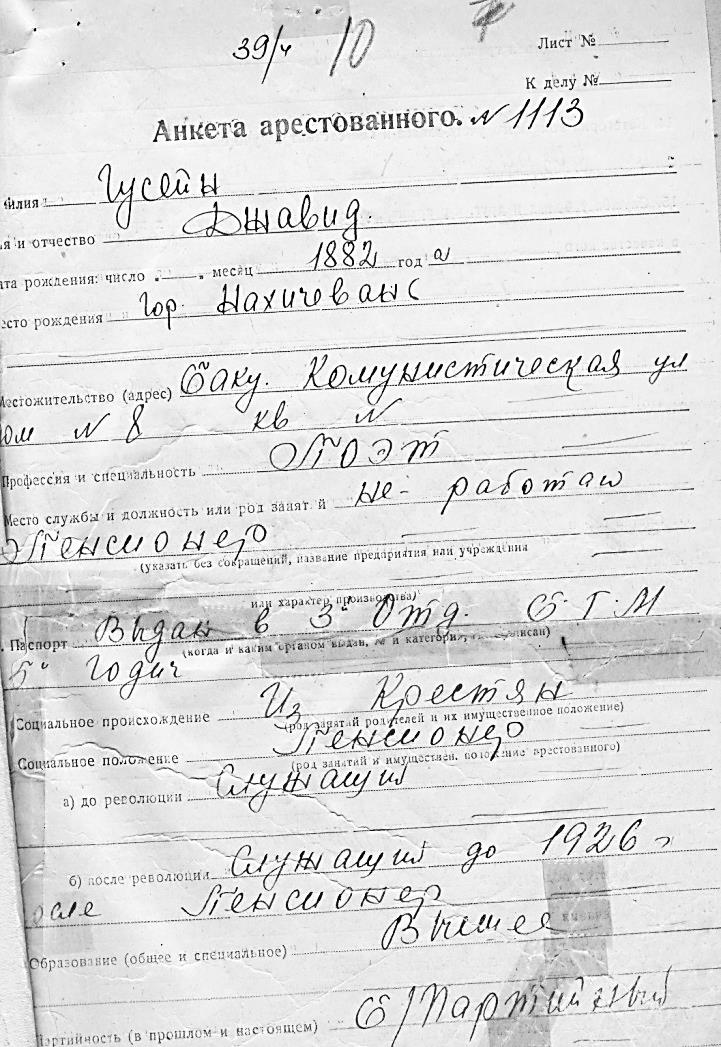 39/4 10
Лист №
К делу №
Анкета арестованного. N 1113
милия Гусейн
я и отчество Джавид.
ата рождения: число месяц 1882 год а
есто рождения гор. Нахичеванс
Местожительство (адрес) Баку. Комунистическая ул
ом N 8 кв N
Профессия и специальность Поэт
Место службы и должность или род занятий не-работаю
Пенсионер
(указать без сокращений, название предприятия или учреждения
или характер производства)
Паспорт Выдан в 3м Отд. Б.Г.М
5и годич
(когда и каким органом выдан, № и категория, прописан)
Социальное происхождение Из Крестян
(род занятий родителей и их имущественное положение)
Социальное положение Пенсионер
(род занятий и имуществен. положение арестованного)
а) до революции Служащий
б) после революции Служащий до 1926 г
осле Пенсионер
Образование (общее и специальное) Высшее
Партийность (в прошлом и настоящем) Б/Партийный